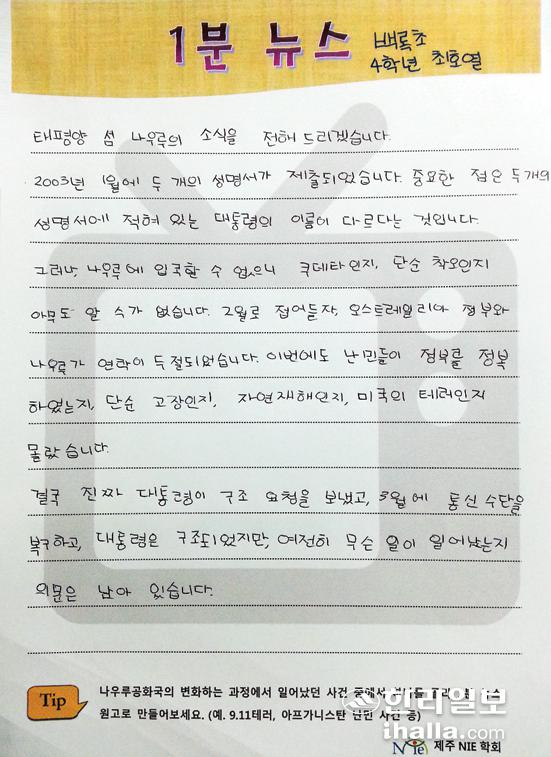 1분 뉴스
백록초
4학년 최호열
태평양 섬 나우루의 소식을 전해 드리겠습니다.
2003년 1월에 두 개의 성명서가 제출되었습니다. 중요한 점은 두개의
성명서에 적혀 있는 대통령의 이름이 다르다는 것입니다.
그러나, 나우루에 입국할 수 없으니 쿠데타인지, 단순 착오인지
아무도 알 수가 없습니다. 2월로 접어들자, 오스트레일리아 정부와
나우루가 연락이 두절되었습니다. 이번에도 난민들이 정부를 정복
하였는지, 단순 고장인지, 자연재해인지, 미국의 테러인지
몰랐습니다.
결국 진짜 대통령이 구조 요청을 보냈고, 3월에 통신 수단을
복구하고, 대통령은 구조되었지만, 여전히 무슨 일이 일어났는지
의문은 남아 있습니다.
Tip
나우루공화국의 변화하는 과정에서 일어났던 사건 중에서 뉴스
원고로 만들어보세요. (예. 9.11테러, 아프가니스탄 난민 사건 등)
한라일보
ihalla.com
NIe 제주 NIE 학회